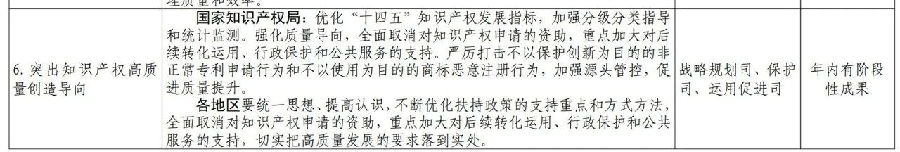 理质量和效率。
国家知识产权局：优化“十四五”知识产权发展指标，加强分级分类指导
和统计监测。强化质量导向，全面取消对知识产权申请的资助，重点加大对后
续转化运用、行政保护和公共服务的支持。严厉打击不以保护创新为目的的非
正常专利申请行为和不以使用为目的的商标恶意注册行为，加强源头管控，促
进质量提升。
各地区要统一思想、提高认识，不断优化扶持政策的支持重点和方式方法，
全面取消对知识产权申请的资助，重点加大对后续转化运用、行政保护和公共
服务的支持，切实把高质量发展的要求落到实处。
6. 突出知识产权高质
量创造导向
战略规划司、保护
司、运用促进司
年内有阶段
性成果